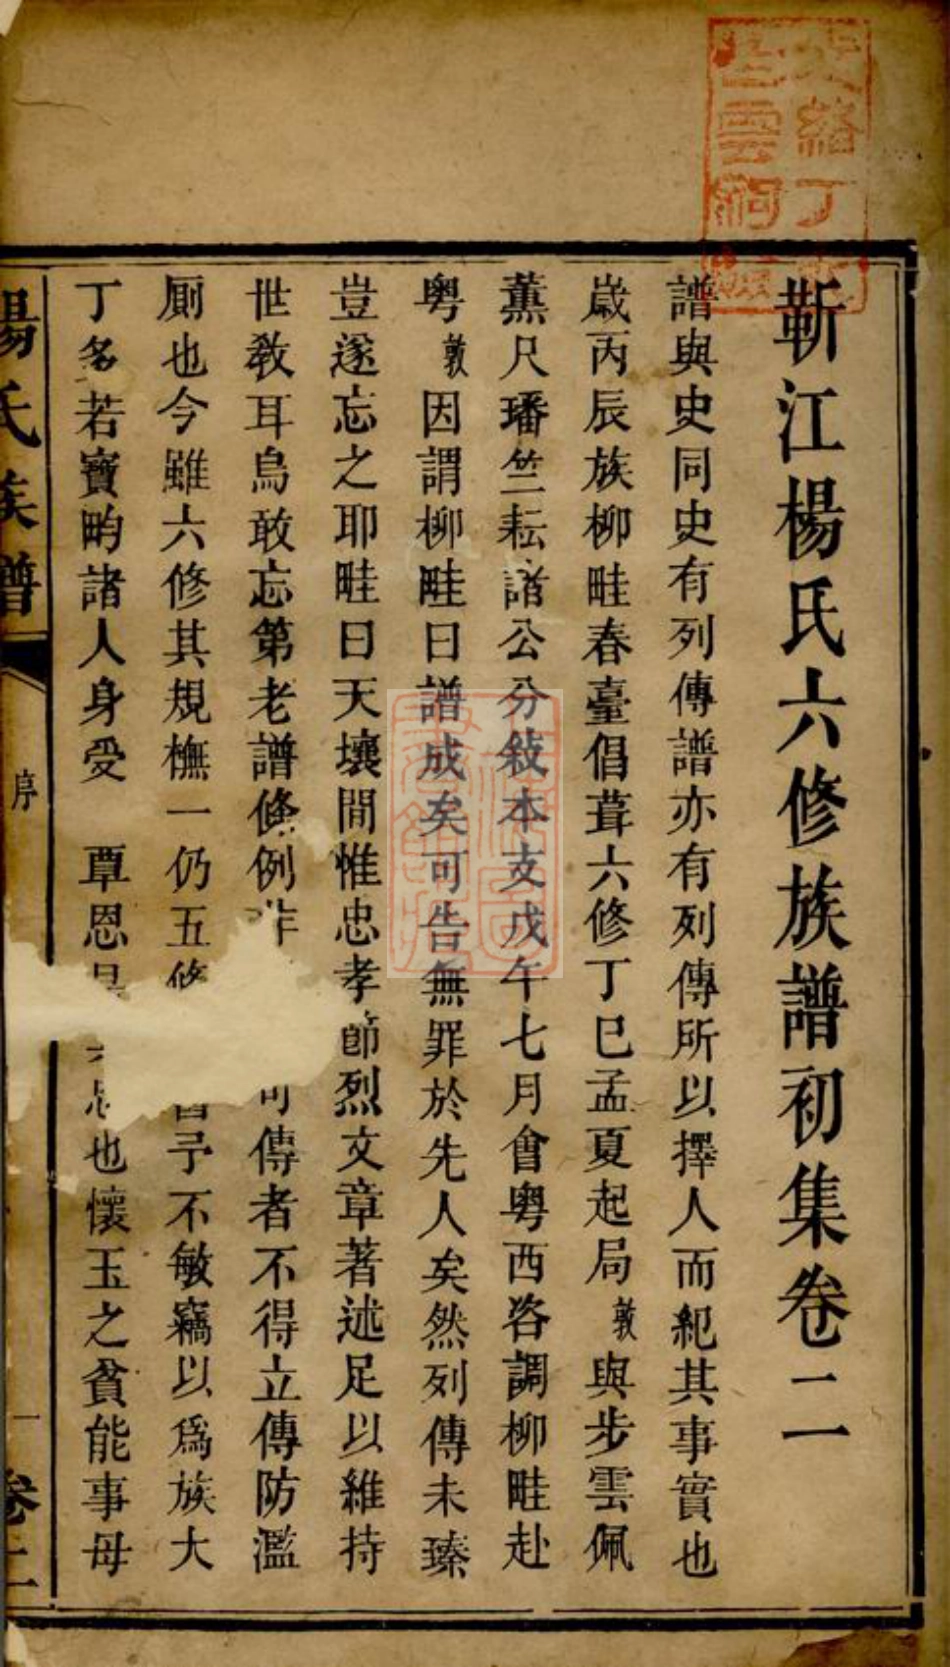 靳江楊氏六修族譜初集卷二
譜與史同史有列傳譜亦有列傳所以擇人而紀其事實也
歲丙辰族柳畦春臺倡葺六修丁巳孟夏起局敦與步雲佩
薰尺璠竺耘諸公分敍本支戊午七月會粵西咨調柳畦赴
粵敦因謂柳畦曰譜成矣可告無罪於先人矣然列傳未臻
豈遂忘之耶畦曰天壤間惟忠孝節烈文章著述足以維持
世教耳烏敢忘第老譜條例非可傳者不得立傳防濫
厠也今雖六修其規橅一仍五修舊予不敏竊以爲族大
丁多若寶畇諸人身受 覃恩是也懷玉之貧能事母
楊氏族譜
序
一
卷二